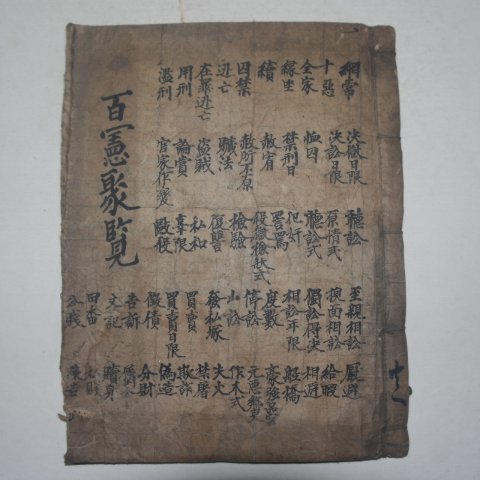 綱常 決獄日限 聽訟 至親相訟 厭避
十惡 決訟日限 原情式 換面相訟 給暇
全家 恤囚 聽訟式 獨訟得決 相避
緣坐 禁刑日 犯奸 相訟年限 船橋
贖 赦宥 詈罵 度數 豪強
囚禁 赦所不原 殺獄檢狀式 停訟 元惡鄕吏
逃亡 贓法 檢驗 山訟 作木式
在罪逃亡 盜賊 復讐 發私塚 失火
用刑 論賞 私和 買賣 禁屠
濫刑 官家作變 辜限 買賣日限 欺詐
毆殺 徵債 偽造
告訴 分財
文記
田畓 贖身
公賤
百憲聚覽